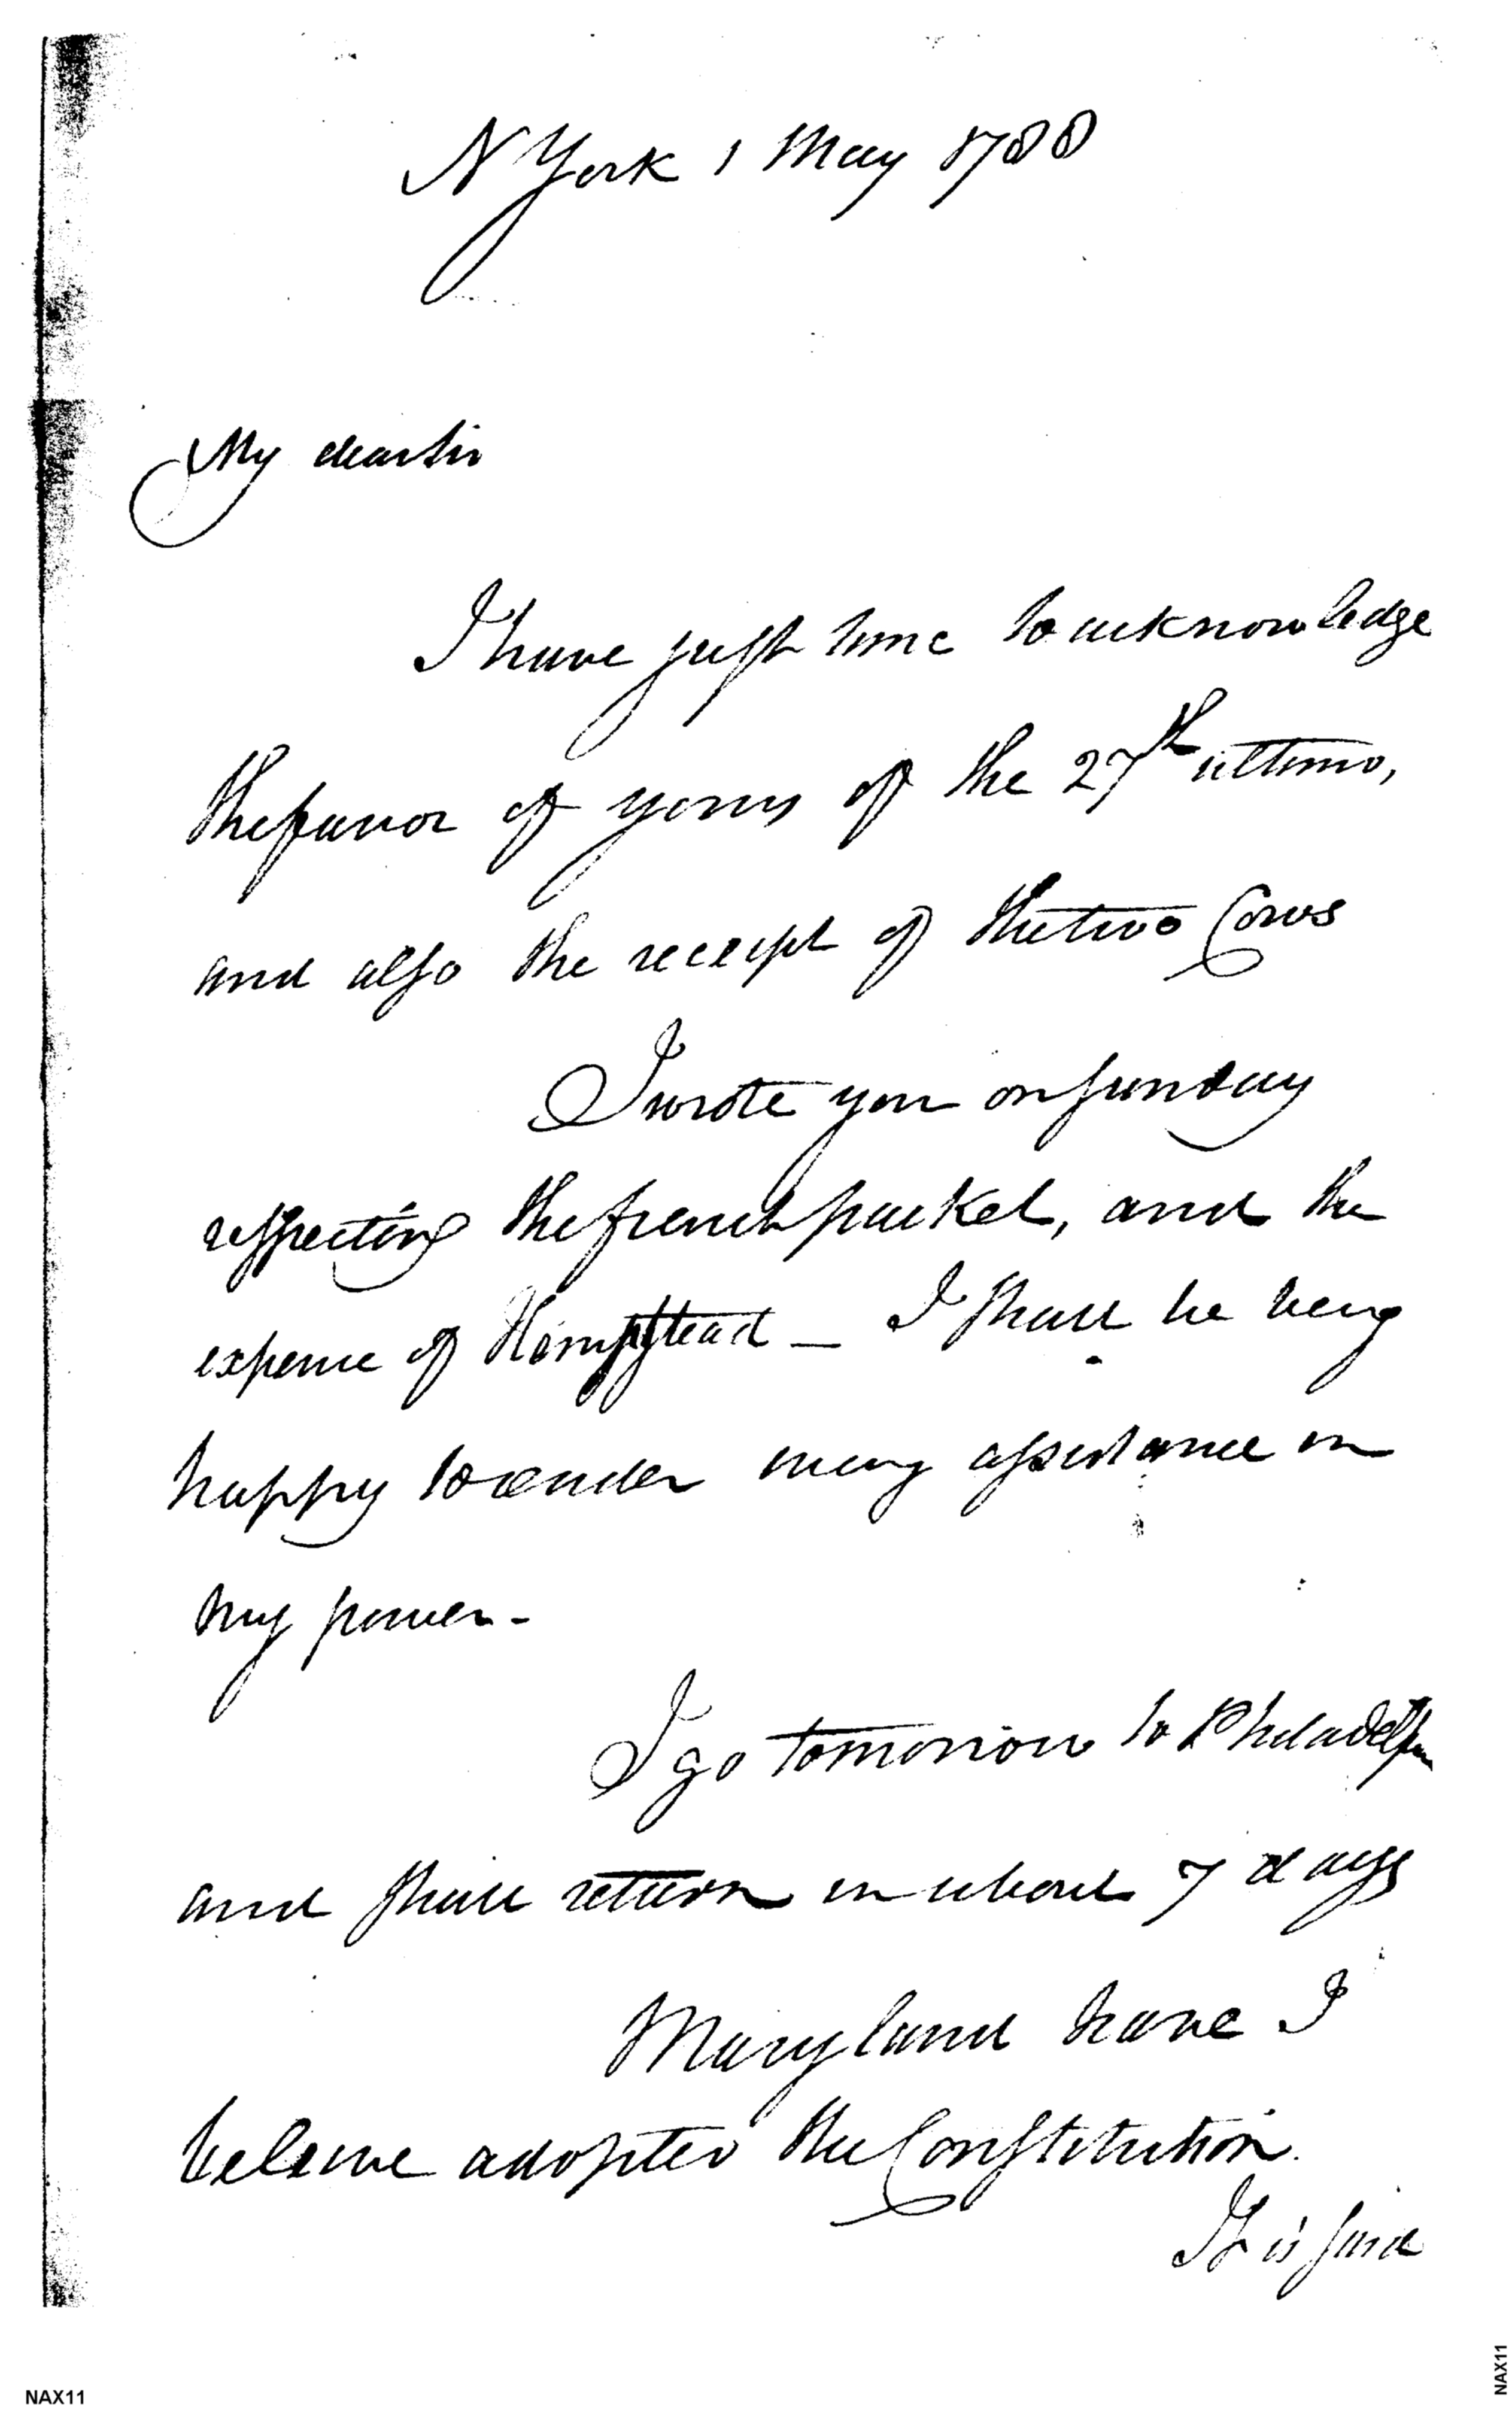 N York 1 May 1788
My dear sir
I have just time to acknowledge
the favor of yours of the 27th ultimo,
and also the receipt of the two Cows
I wrote you on sunday
respecting the french packet, and the
expence of Hempstead — I shall be being
happy to render every assistance in
my power -
I go tomorrow to Philadelpa
and shall return in about 7 days
Maryland have I
beleive adopted the Constitution.
It is said
NAX11
NAX11